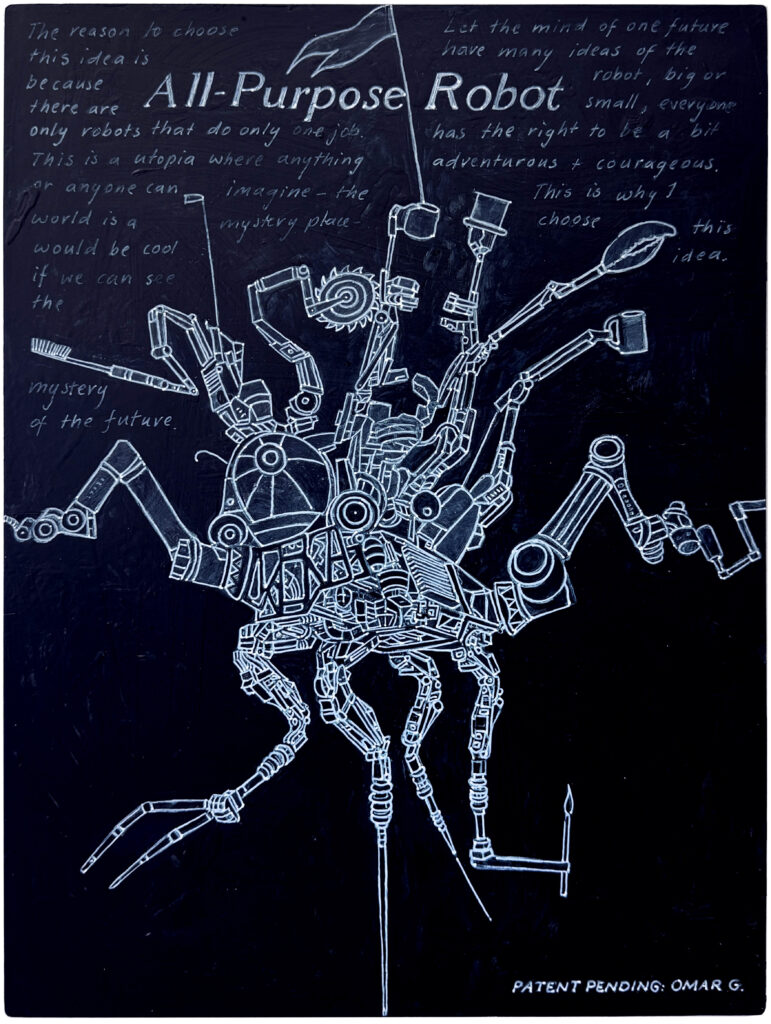 All-Purpose Robot
The reason to choose
this idea is
because
there are
only robots that do only one job.
This is a utopia where anything
or anyone can imagine – the
world is a mystery place –
would be cool
if we can see
the
mystery
of the future.
Let the mind of one future
have many ideas of the
robot, big or
small, everyone
has the right to be a bit
adventurous + courageous.
This is why I
choose this
idea.
PATENT PENDING: OMAR G.